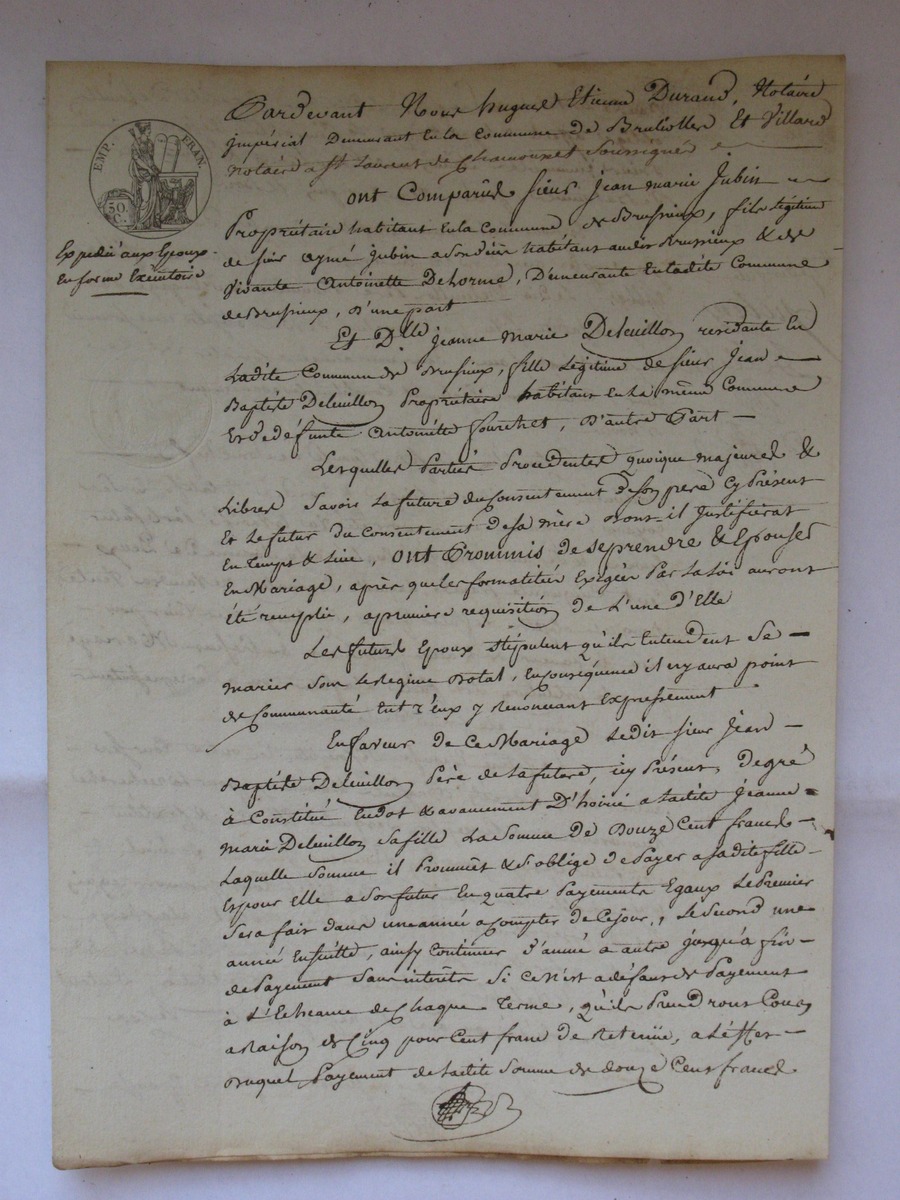 Pardevant Nous hugues Etienne Durand, Notaire
impérial Demeurant en la Commune de Brullolles Et Villard
Notaire a St Laurent de Chamousset Soussignés
EMP. FRAN.
50 C.
Expedié aux Epoux
En forme Exécutoire
ont Comparûs sieur Jean marie Jubin
Propriétaire habitant en la Commune de Brussieux, fils légitime
de sieur aymé Jubin a son décès habitant audit Brussieux & de
Vivante Antoinette Delorme, Demeurante en ladite Commune
de Brussieux, D'une part
Et Dlle jeanne marie Deleuillon residante En
Ladite Commune de Brussieux, fille légitime de sieur Jean
Baptiste Deleuillon Propriétaire habitant en la même Commune
Et de défunte Antoinette fourchet, D'autre Part
Lesquelles Parties Procedentes quoique majeures &
Libres Savoir La future du Consentement de son pere Cy Présent
Et Le futur du Consentement de sa mère dont il Justifierat
En Temps & Lieu, ont Prommis de se prendre & Epouser
En Mariage, après que les formalitées Exigées Par La Loi auront
été remplie, a premiere requisition de L'une d'Elle
Les futurs Epoux stipulent qu'ils Entendent Se
marier Sous le Regime Dotal, En conséquence il n'y aura point
de Communauté Entr'eux y Renoncant Expressement
En faveur de Ce Mariage Ledit sieur Jean
Baptiste Deleuillon Père de La future, icy Présent, de gré
à Constitué En dot & avancement D'hoirie a Ladite Jeanne
Marie Deleuillon sa fille La Somme de Douze Cent francs
Laquelle Somme il Prommet & s'oblige de Payer a sadite fille
Et pour Elle a Son futur En quatre Payements Egaux Le Premier
Sera fait dans une année a Compter de Ce jour, Le Second une
année Ensuitte, ainsy Continuer d'année a autre jusqu'a fin
de Payement Sans interêts Si Ce n'est a défaut de Payement
à L'Echeance de Chaque Terme, qu'ils Prendront Cours
a Raison de Cinq pour Cent franc de Retenüe, a L'effet
Duquel Payement de Ladite Somme de douze Cent francs